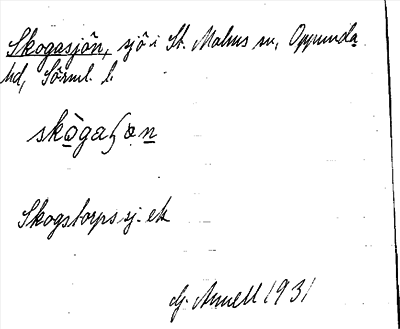 Skogasjön, sjö i St. Malms sn, Oppunda
hd, Sörml. l.
skògaɧøn
Skogstorps sj. ek
G. Annell 1931